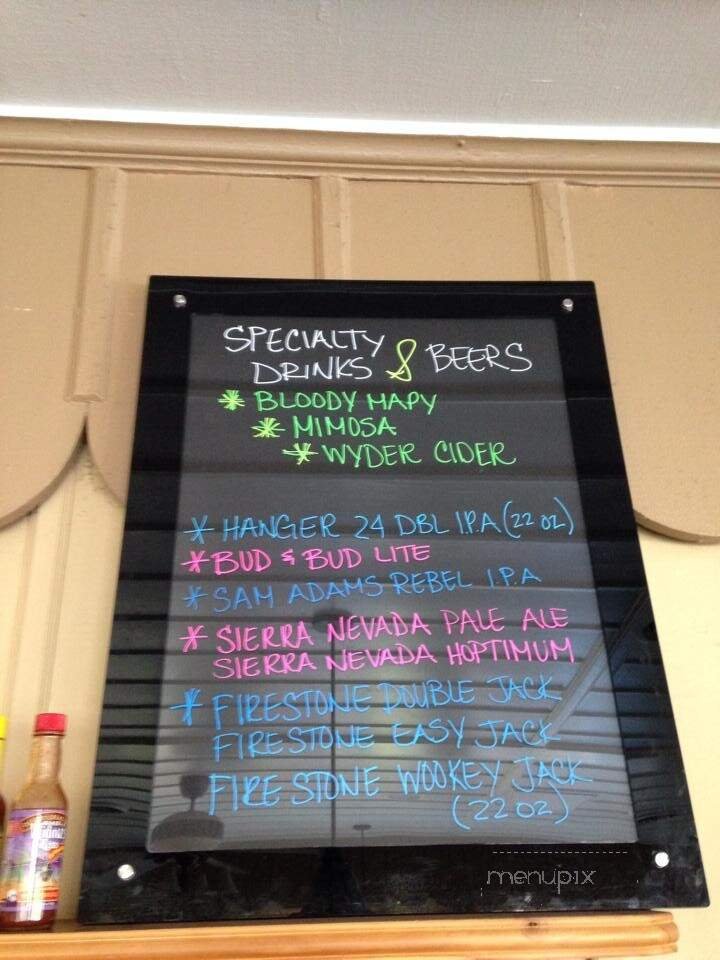 SPECIALTY
DRINKS & BEERS
* BLOODY MARY
* MIMOSA
* WYDER CIDER
* HANGER 24 DBL I.P.A (22 OZ)
* BUD & BUD LITE
* SAM ADAMS REBEL I.P.A
* SIERRA NEVADA PALE ALE
SIERRA NEVADA HOPTIMUM
* FIRESTONE DOUBLE JACK
FIRESTONE EASY JACK
FIRESTONE WOOKEY JACK
(22 OZ)
menupix